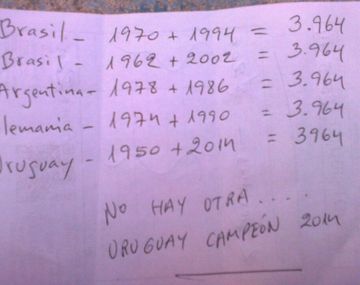 Brasil - 1970 + 1994 = 3.964
Brasil - 1962 + 2002 = 3.964
Argentina - 1978 + 1986 = 3.964
lemania - 1974 + 1990 = 3.964
Uruguay - 1950 + 2014 = 3964
NO HAY OTRA....
URUGUAY CAMPEÓN 2014